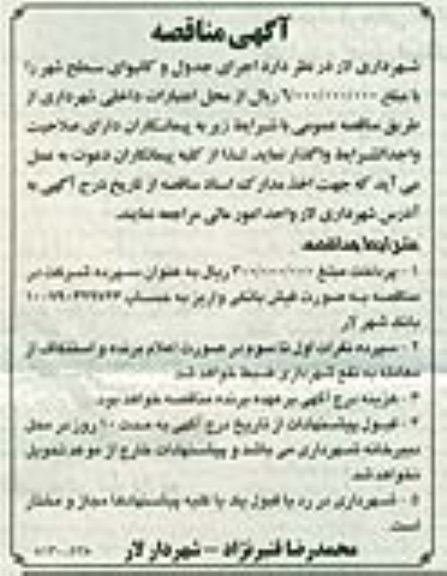 آگهی مناقصه
شهرداری لار در نظر دارد اجرای جدول و کانیوای سطح شهر را
با مبلغ ریال از محل اعتبارات داخلی شهرداری از
طریق مناقصه عمومی با شرایط زیر به پیمانکاران دارای صلاحیت
واجدالشرایط واگذار نماید. لذا از کلیه پیمانکاران دعوت به عمل
می آید که جهت اخذ مدارک اسناد مناقصه از تاریخ درج آگهی به
آدرس شهرداری لار واحد امور مالی مراجعه نمایند.
شرایط مناقصه:
۱- پرداخت مبلغ ریال به عنوان سپرده شرکت در
مناقصه به صورت فیش بانکی واریز به حساب
بانک شهر لار
۲- سپرده نفرات اول تا سوم در صورت اعلام برنده و استنکاف از
معامله به نفع شهرداری ضبط خواهد شد.
۳- هزینه درج آگهی بر عهده برنده مناقصه خواهد بود.
۴- قبول پیشنهادات از تاریخ درج آگهی به مدت ۱۰ روز در محل
دبیرخانه شهرداری می باشد و پیشنهادات خارج از موعد تحویل
نخواهد شد.
۵- شهرداری در رد یا قبول یک یا کلیه پیشنهادها مجاز و مختار
است.
محمدرضا قنبرنژاد - شهردار لار